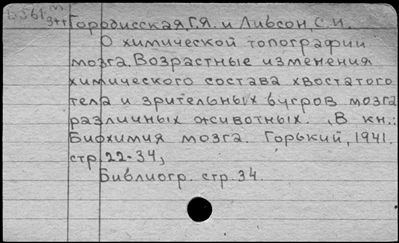 Б561 m
3++
Городисская, Г.Я. и Ливсон, С.И.
О химической топографии
мозга. Возрастные изменения
химического состава хвостатого
тела и зрительных бугров мозга
различных животных. В кн.:
Биохимия мозга. Горький, 1941.
стр. 22-34,
Библиогр. стр. 34.